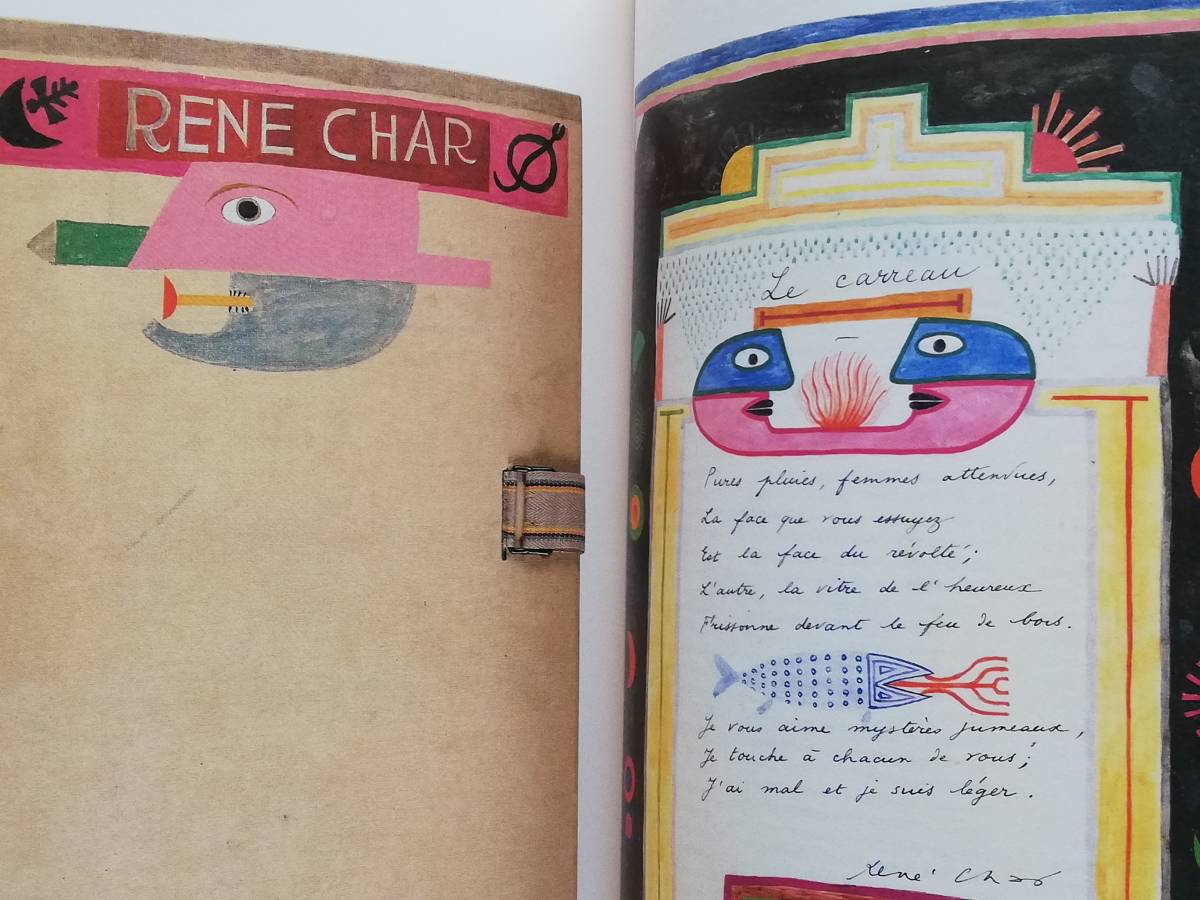 RENE CHAR
Le carreau
Pures pluies, femmes attendues,
La face que vous essuyez
Est la face du révolté;
L'autre, la vitre de l'heureux
Frissonne devant le feu de bois.
Je vous aime mystères jumeaux,
Je touche à chacun de vous;
J'ai mal et je suis léger.
René Char